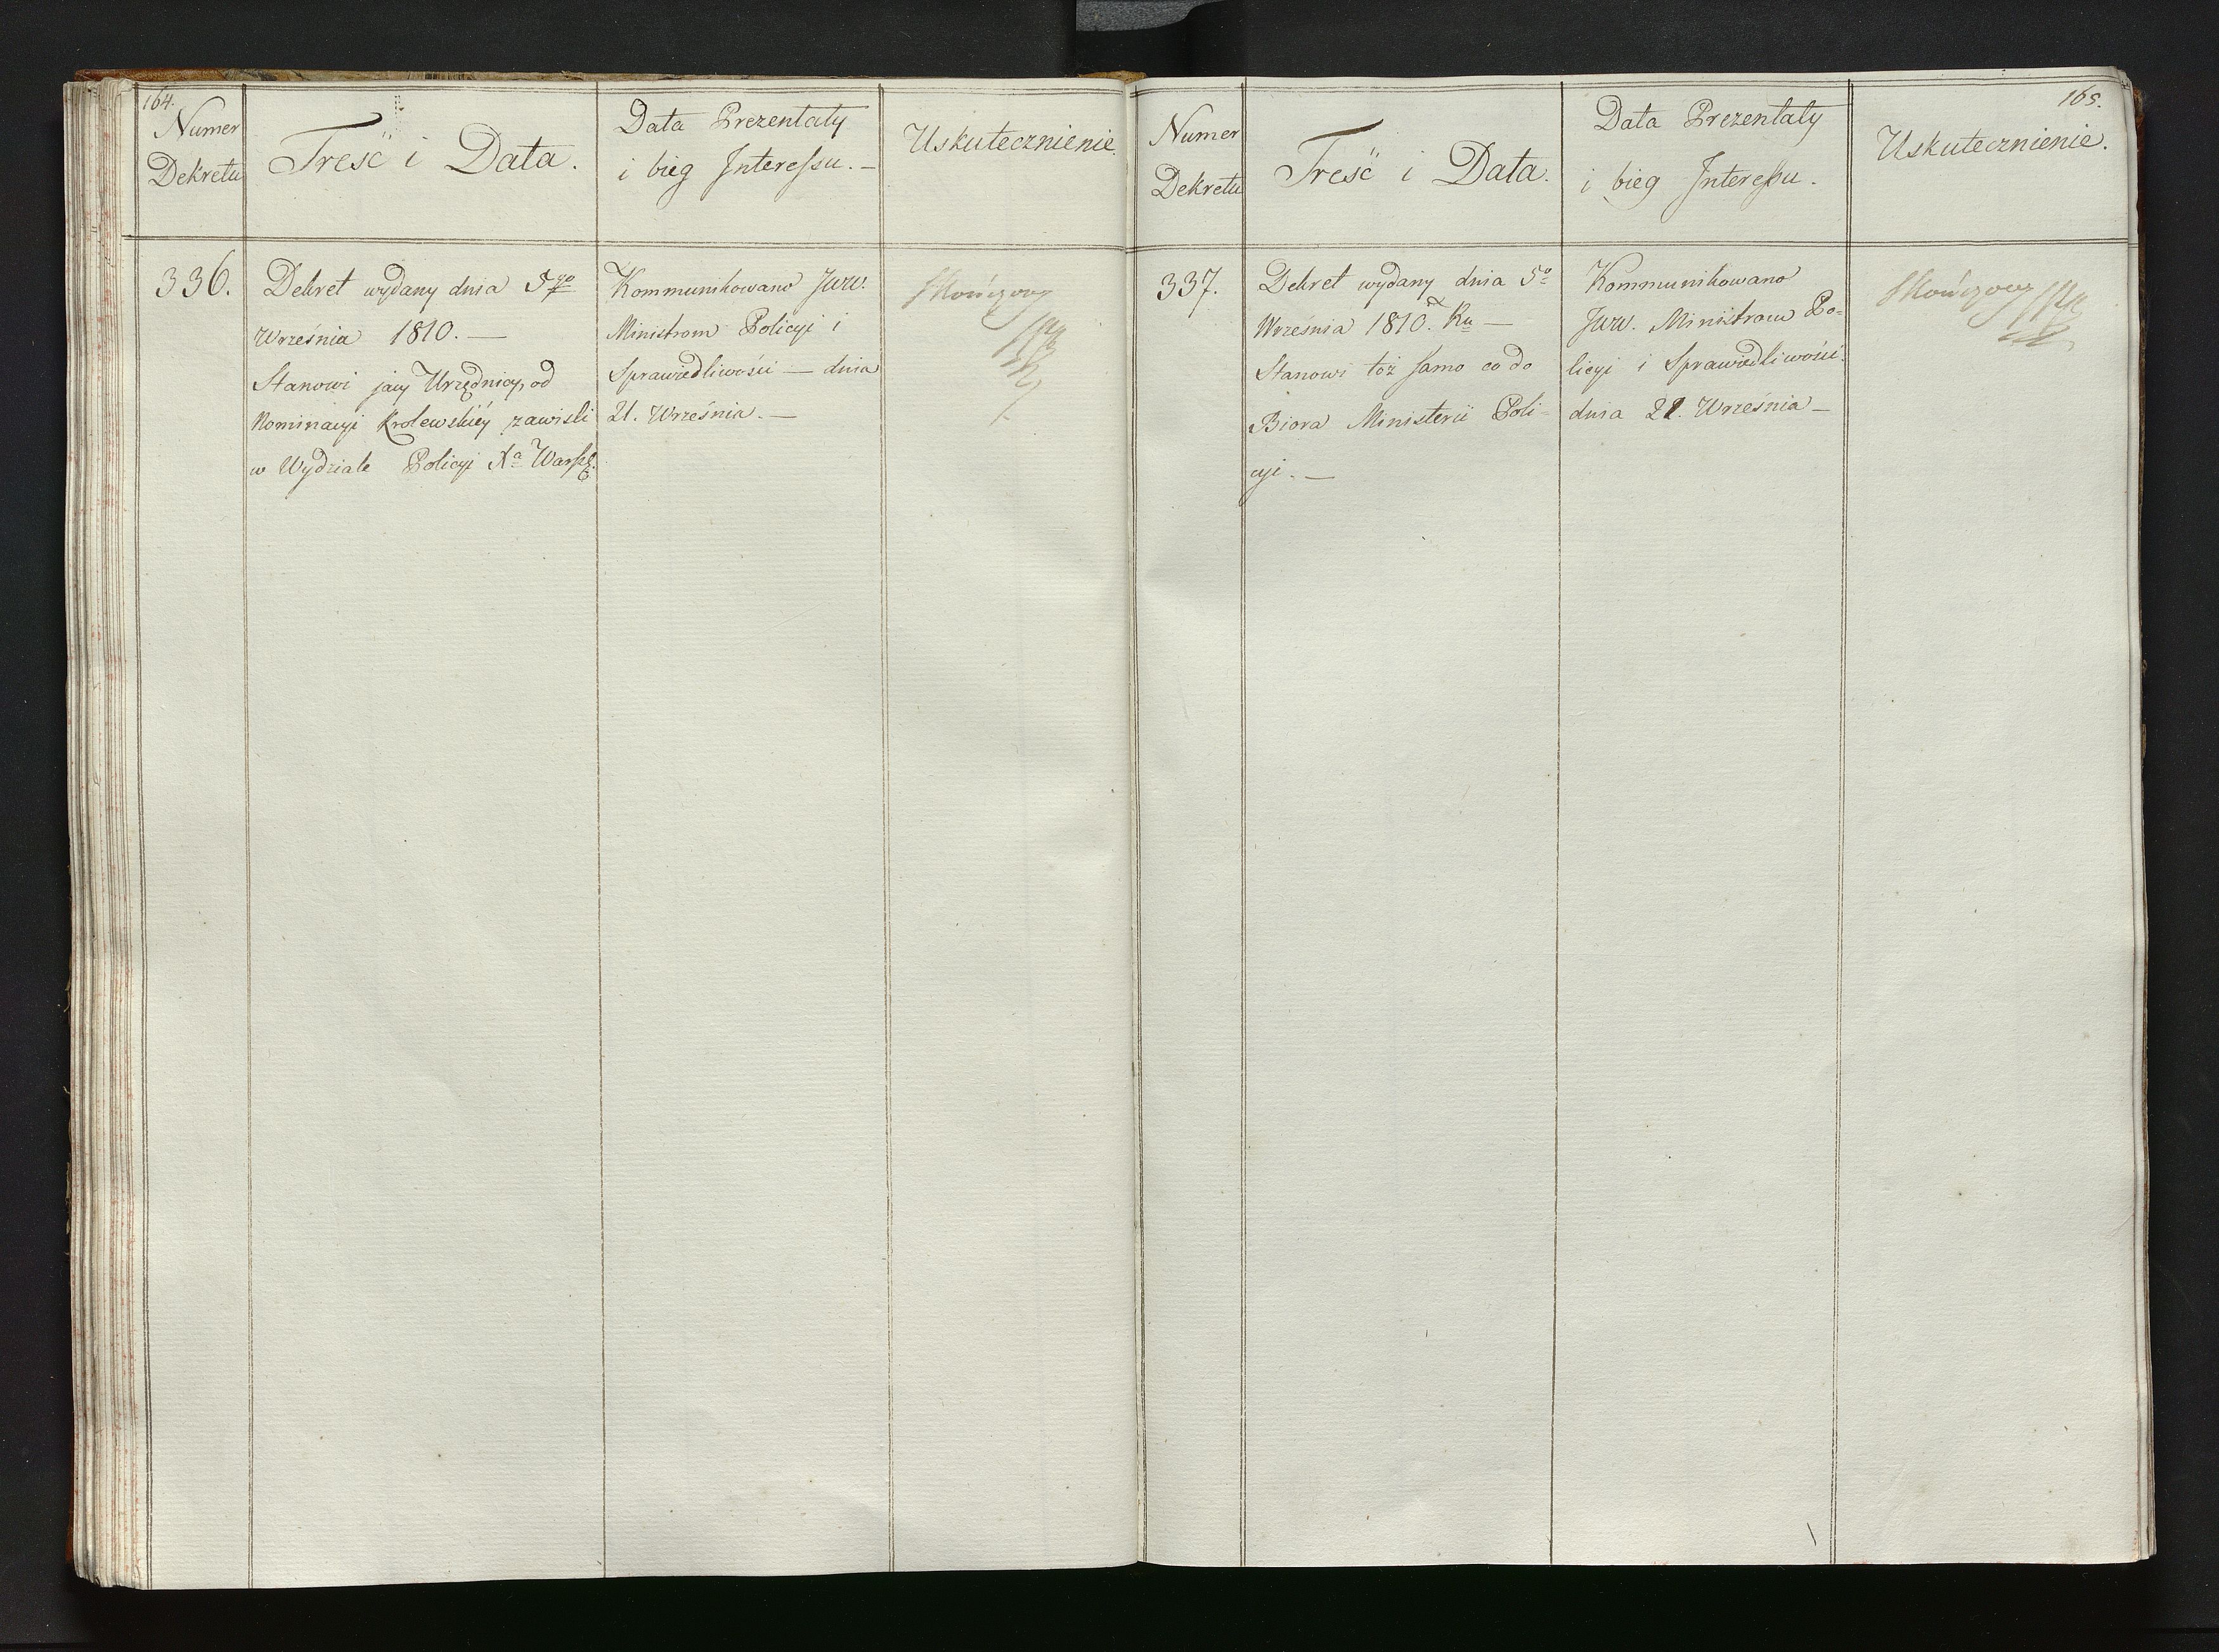 164.
Numer
Dekretu
Treść i Data.
Data Prezentaty
i bieg Interessu. —
Uskutecznienie.
336.
Dekret wydany dnia 5go
Września 1810. —
Stanowi jacy Urzędnicy, od
Nominacyi Krolewskiéy zawisli
w Wydziale Policyi Xa Warsz:
Kommunikowano Jww.
Ministrom Policyi i
Sprawiedliwości — dnia
21. Września. —
Skończony
165.
Numer
Dekretu
Treść i Data.
Data Prezentaty
i bieg Interessu.
Uskutecznienie.
337.
Dekret wydany dnia 5o
Września 1810. Ru —
Stanowi tóż samo co do
Biora Ministerii Poli-
cyi. —
Kommunikowano
Jww. Ministrom Po-
licyi i Sprawiedliwości
dnia 21. Września —
Skończony